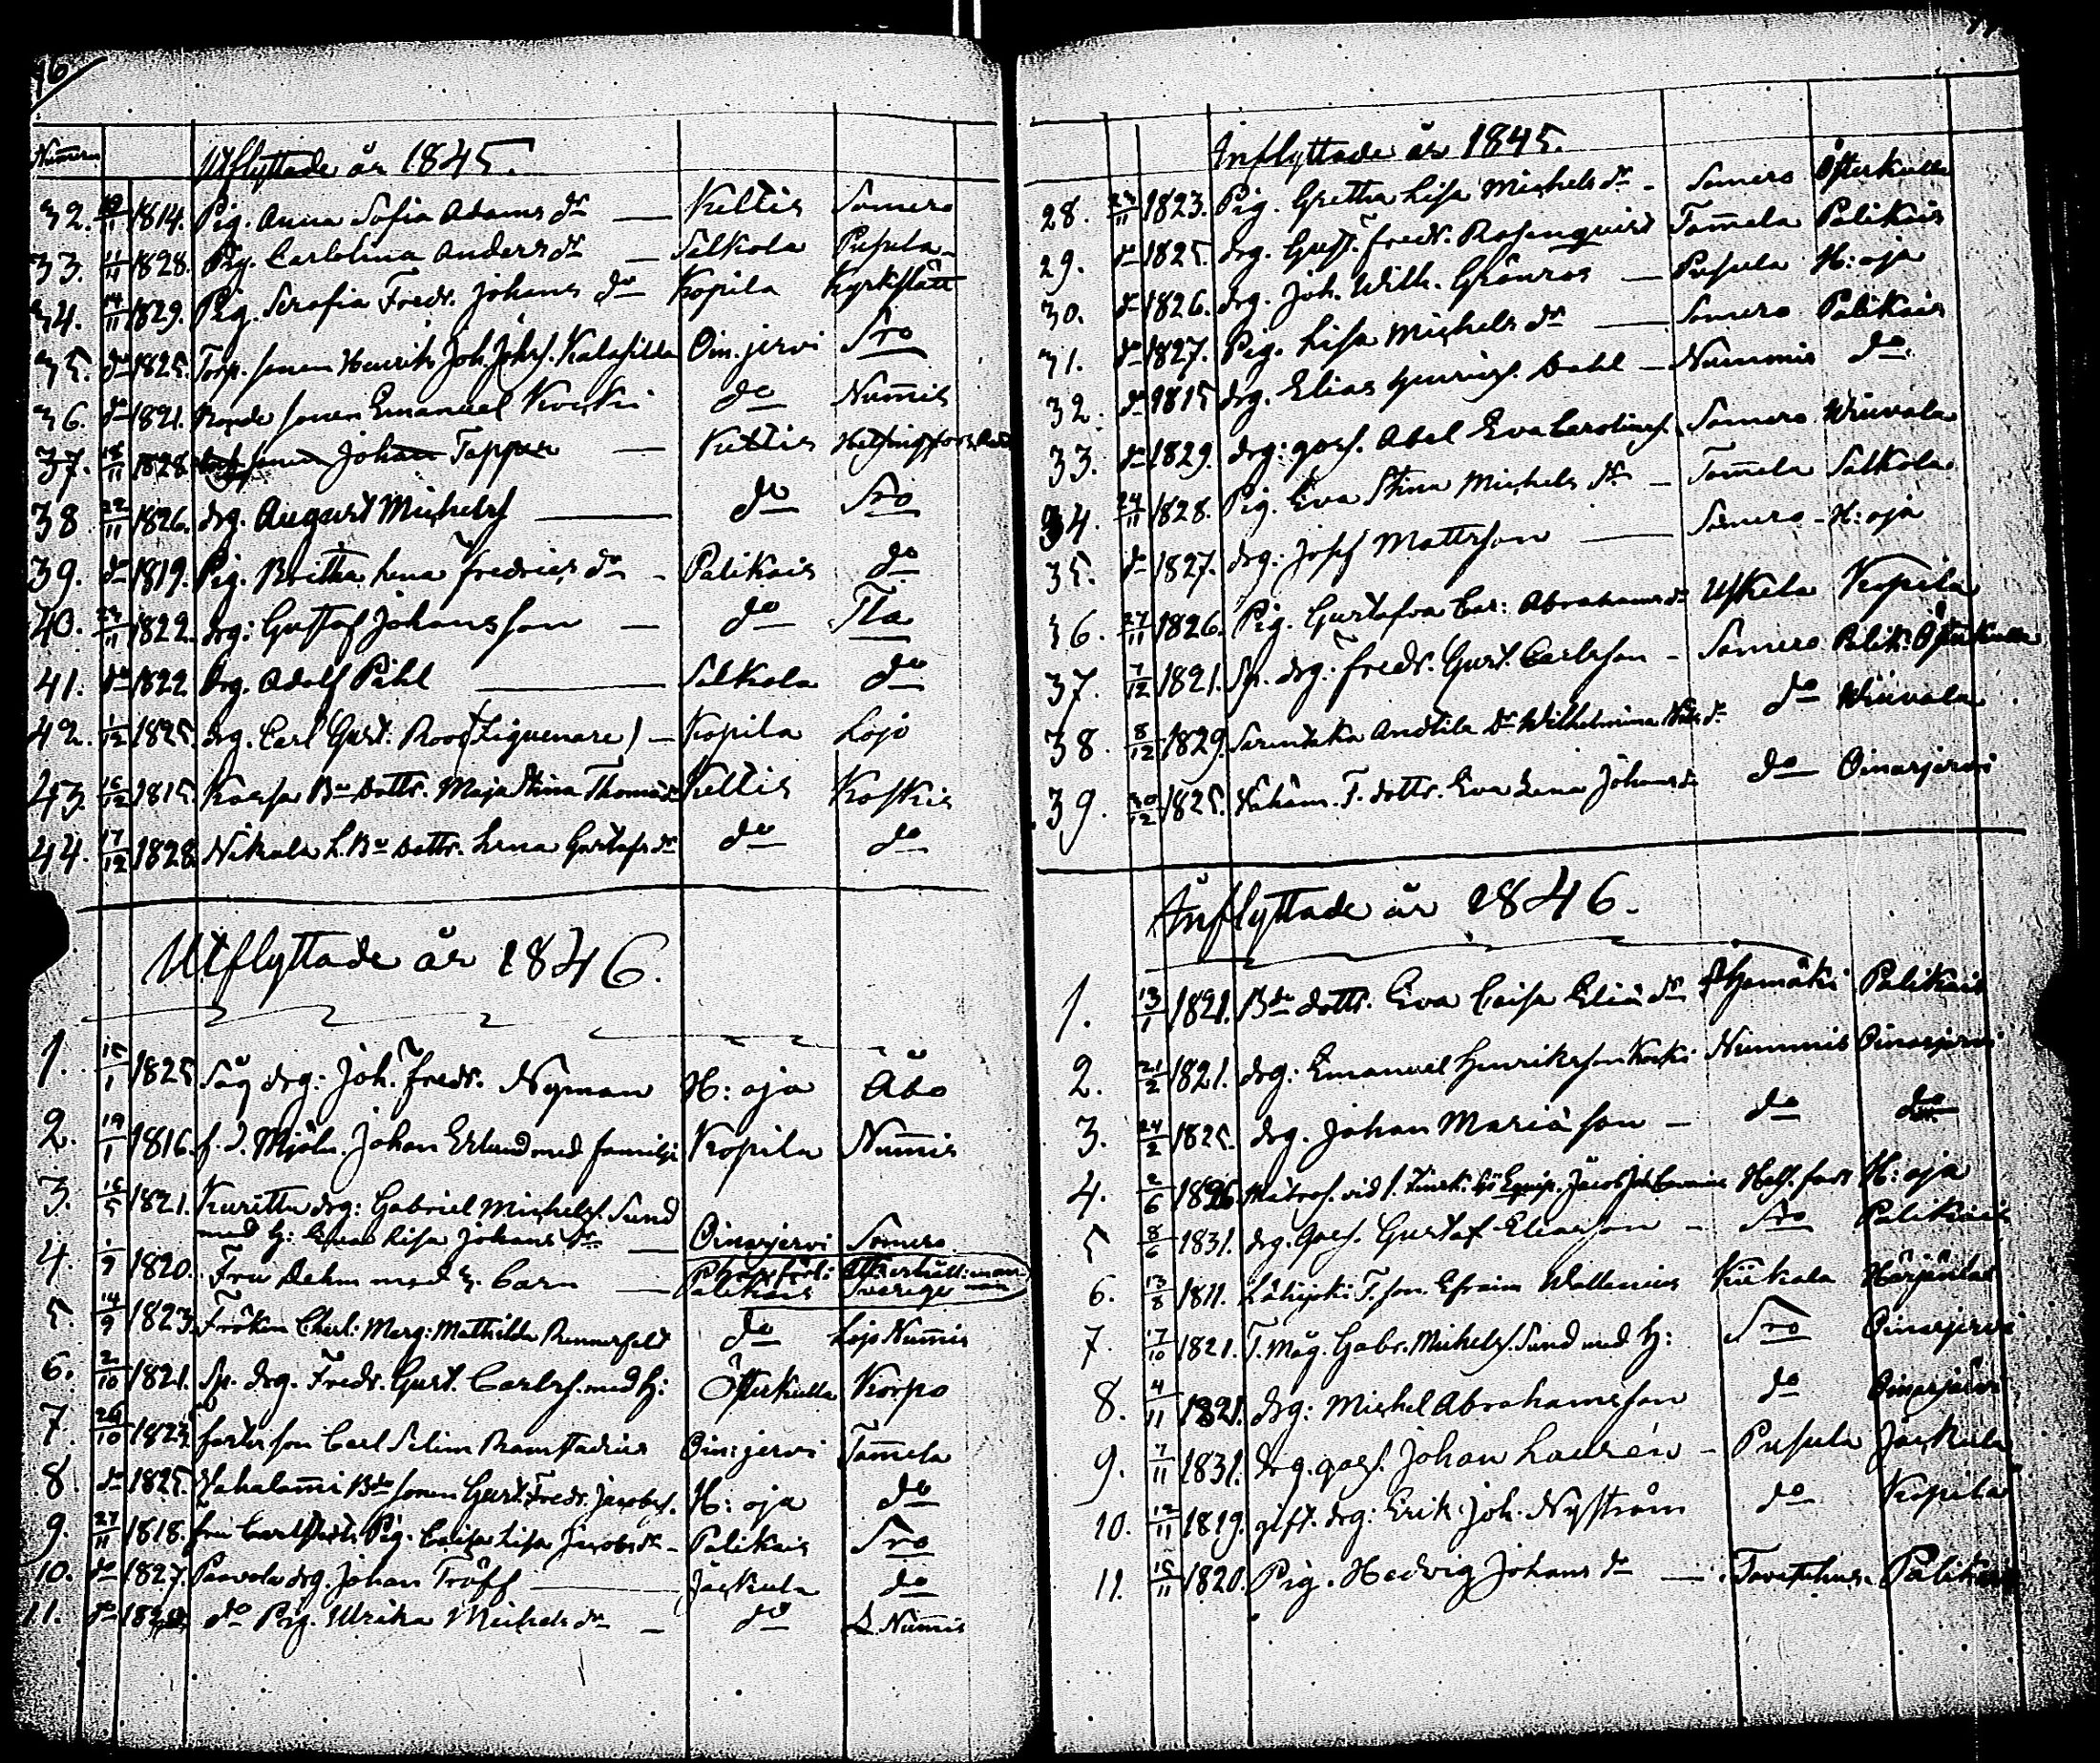 Numero
Utflyttade år 1845.
32. 11 1814. Pig. Anna Sofia Adams dr — Kultis Somero
33. 11 1828. Pig. Carlolina Anders dr — Salkola Pusula
34. 14/11 1829. Pig. Serafia Fredr. Johans dr Kopila Kyrkslätt
35. do 1825. Torp. sonen Henrik Joh. Johss. Oin. jervi Sro
36. do 1821. sonen Emanuel Koski do Nummis
37. 18/11 1828. sonen Johan Tapper — Kultis Helsingfors
38 22/11 1826. drg. August Michelss — do Sro
39. do 1819. Pig. Britha Lena Fredrics dr - Palikais do
40. 11 1822. drg: Gustaf Johansson — do Tla
41. do 1822 drg. Adolf Pihl — Salkola do
42. 1/12 1825. drg. Carl Gust. Roos (Ziguenare) — Kopila Lojo
43. 16/12 1815. Dottr. Maja Stina Thomas dr Kultis Koskis
44. 17/12 1828. Nikula L. Bo Dottr. Lena Gustafs dr do do
Utflyttade år 1846.
1. 15/1 1825 Såg drg: Joh. Fredr. Nyman H: oja Åbo
2. 19/1 1816. f. d. Mjöln. Johan Erlund med familje Kopila Nummis
3. 16/5 1821. Kuritta drg: Gabriel Michelss. Sund
med h: Eva Lisa Johans dr — Oinasjervi Somero
4. 1/9 1820. Fru Aehm med 3. Barn — Palikais Sverige
5. 14/9 1823. Fröken Charl: Marg: Mathilda Rennerfelt do Lojo Nummis
6. 2/10 1821. Sp. drg. Fredr. Gust. Carlss. med h: Åsterkulla Korpo
7. 26/10 1823. son Carl Selim Ramstadius Oin: jervi Tammela
8. do 1825. Vahalammi Bde sonen Gust. Fredr. Jacobss. H: oja do
9. 27/11 1818. Pig. Caisa Lisa Jacobs dr - Palikais Sro
10. do 1827. Paavola drg. Johan Tröff — Jackula do
11. do do Pig. Ulrika Michels dr — do Nummis
Inflyttade år 1845.
28. 11 1823. Pig. Gretha Lisa Michels dr - Somero Åsterkulla
29. do 1825. drg. Gust. Fredr. Rosenqvist Tammela Palikais
30. do 1826. drg. Joh. Wilh. Grönros — Pusula H: oja
31. do 1827. Pig. Lisa Michels dr — Somero Palikais
32. do 1815 drg. Elias Henricss. Dahl — Nummis do
33. do 1829. drg: goss. Abel Eva Carolinass. Somero Wiuvala
34. 24/11 1828. Pig. Eva Stina Michels dr — Tammela Salkola
35. do 1827. drg: Josef Mattsson — Somero - H: oja
36. 27/11 1826. Pig. Gustafva Car: Abrahams dr Uskela Kopila
37. 7/12 1821. Sp. drg. Fredr. Gust. Carlsson - Somero Palik: Åsterkulla
38. 8/12 1829. Andtila Dr Wilhelmina do Wiuvala
39. 30/12 1825. T. dottr. Eva Lena Johans dr do Oinasjervi
Inflyttade år 1846.
1. 13/1 1821. Bde dottr. Eva Caisa Eliæ dr Palikais
2. 21/2 1821. drg: Emanuel Henriksson Koski Nummis Oinasjervi
3. 24/2 1825. drg. Johan Mariæson — do do
4. 2/6 1826. Matros. vid 1. Finsk: Equip. Jacob Helsfors H: oja
5 8/6 1831. drg. goss. Gustaf Eliasson - Sro Palikais
6. 13/8 1811. T. son. Efraim Wallenius Kiikala Härjänlai
7. 17/10 1821. T. Måg. Gabr. Michelss. Sund med h: Sro Oinasjervi
8. 4/11 1821. drg: Michel Abrahamsson do Oinasjärvi
9. 7/11 1831. drg. goss. Johan Laurén - Pusula Jackula
10. 12/11 1819. gift. drg: Erik Joh. Nyström do Kopila
11. 15/11 1820. Pig. Hedvig Johans dr — Tavasthus. Palikais